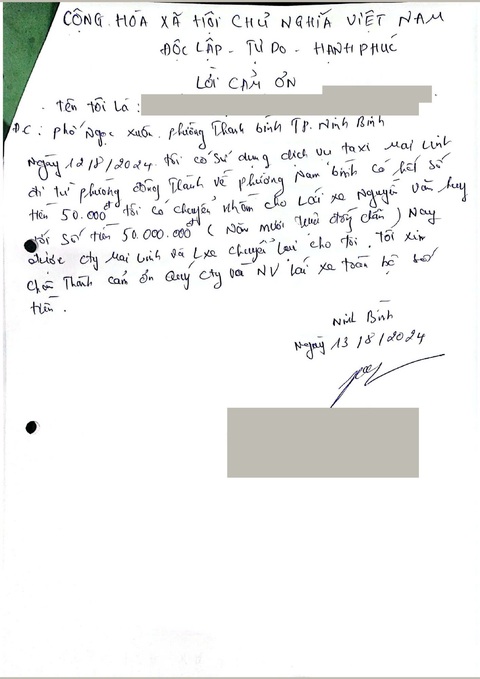 CỘNG HÒA XÃ HỘI CHỦ NGHĨA VIỆT NAM
ĐỘC LẬP - TỰ DO - HẠNH PHÚC
LỜI CẢM ƠN
- Tên tôi là :
ĐC : phố Ngọc xuân. phường Thanh bình TP. Ninh Bình
Ngày 12/8/2024. tôi có sử dụng dịch vụ taxi Mai Linh
đi từ phường đông Thành về phường Nam bình có hết số
tiền 50.000đ tôi có chuyển nhầm cho Lái xe Nguyễn văn huy
tới số tiền 50.000.000đ ( Năm mươi triệu đồng chẵn ) Nay
được cty Mai Linh và Lxe chuyển lại cho tôi. Tôi xin
chân Thành cảm ơn Quý cty và NV lái xe toàn bộ số
tiền .
Ninh Bình
Ngày 13/8/2024